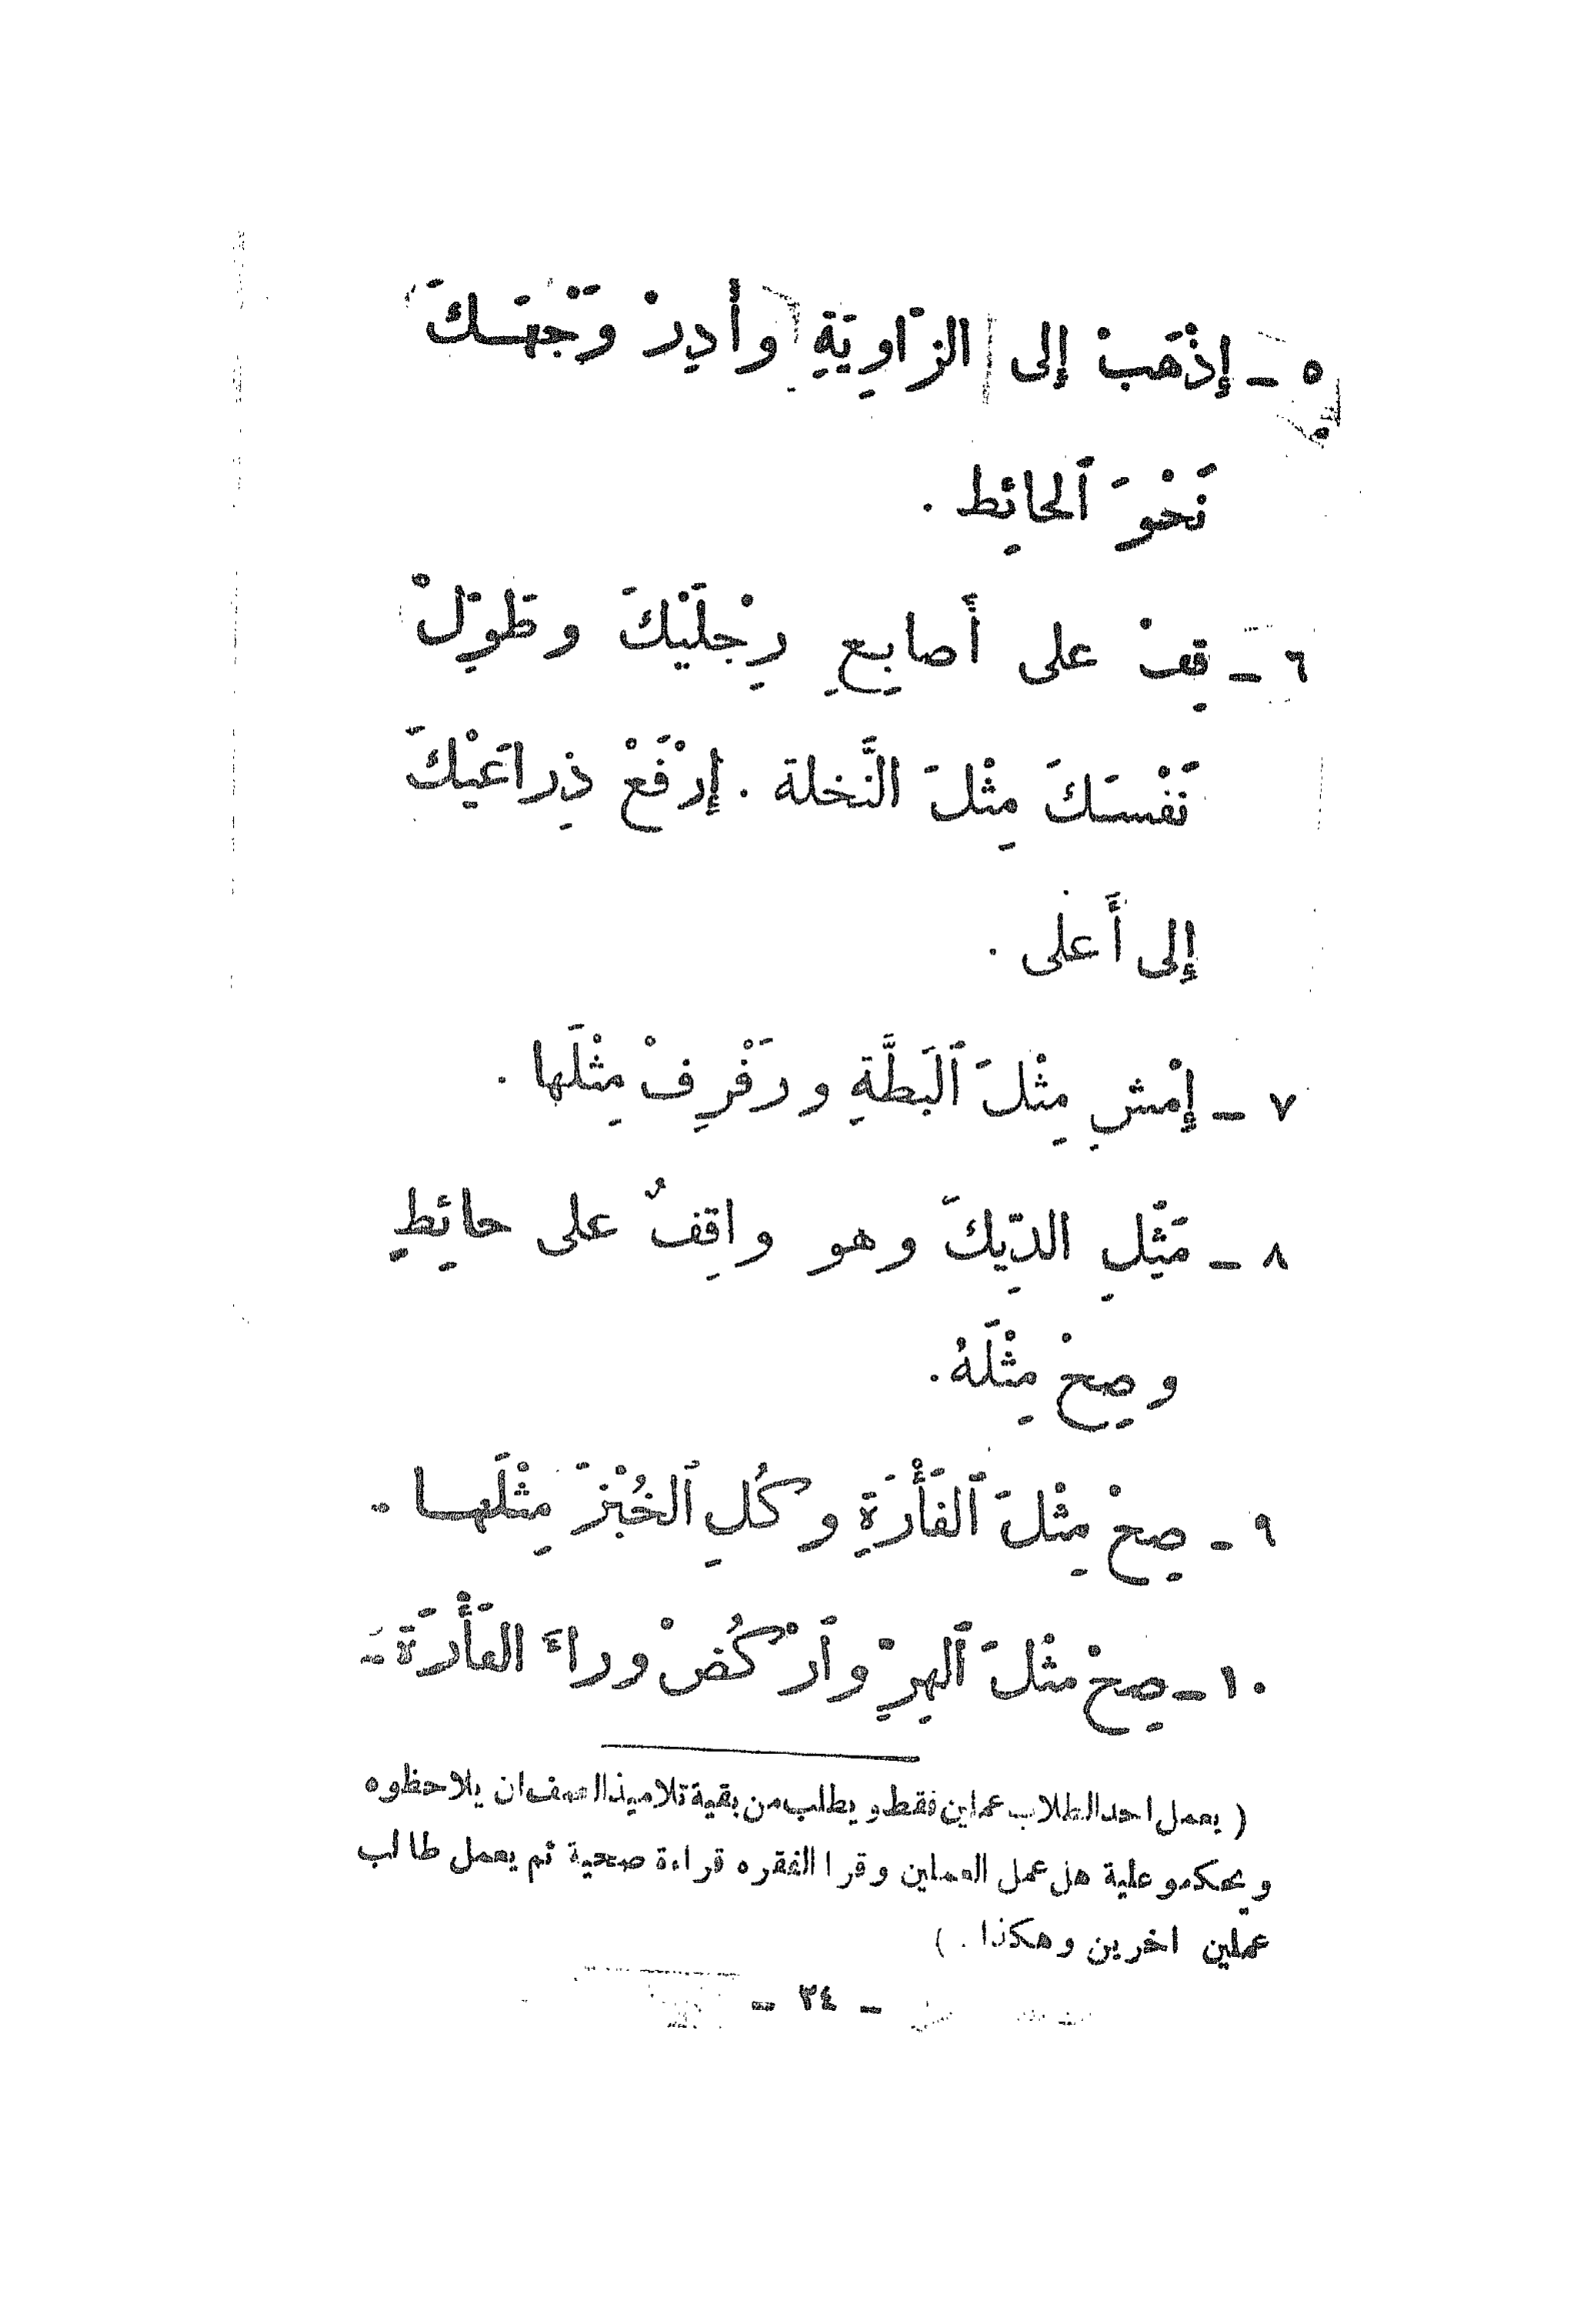 ٥ ـ إِذْهَبْ إِلى الزّاوِيَةِ وأَدِرْ وَجْهَـكَ
نَحْوَ ٱلحائِط .
٦ ـ قِفْ على أَصابِعِ رِجْلَيْكَ وطَوِّلْ
نَفْسَكَ مِثْلَ النَّخلة . إِرْفَعْ ذِراعَيْكَ
إِلى أَعلى .
٧ ـ إِمْشِ مِثْلَ ٱلبَطَّةِ ورَفْرِفْ مِثْلَها .
٨ ـ مَثِّلِ الدِّيكَ وهو واقِفٌ على حائِطٍ
وصِحْ مِثْلَهُ.
٩ ـ صِحْ مِثْلَ ٱلفَأْرَةِ وكُلِ ٱلخُبْزَ مِثْلَهـا .
١٠ ـ صِحْ مثْلَ ٱلهِرِّ وٱرْكُضْ وراءَ الفَأْرَةَ .
( يعمل احد الطلاب عملين فقط و يطلب من بقية تلاميذ الصف ان يلاحظوه
و يحكمو علية هل عمل العملين وقرا الفقره قراءة صحية ثم يعمل طالب
عملين اخرين وهكذا . )
ـ ٣٤ ـ